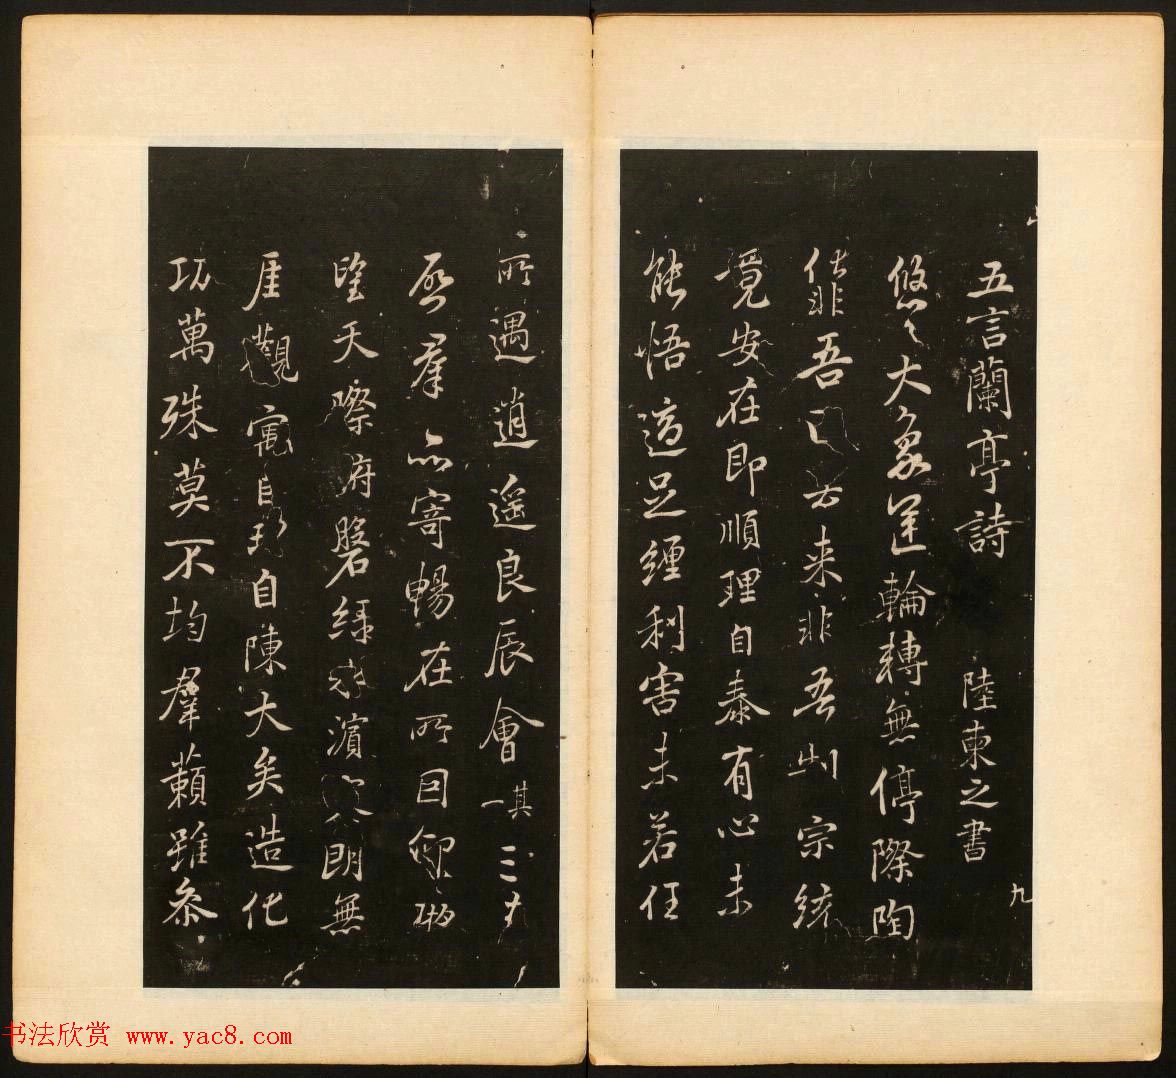 五言蘭亭詩 陸柬之書
九
悠〻大象運輪轉無停際陶
化非吾去来非吾制宗統
竟安在即順理自泰有心未
能悟適足纏利害未若任
所遇逍遥良辰會 其一 三
啓羣品寄暢在所因仰眺
望天際俯磐緑水濱朗無
厓觀寓目理自陳大矣造化
功萬殊莫不均羣籟雖參
书法欣赏 www.yac8.com